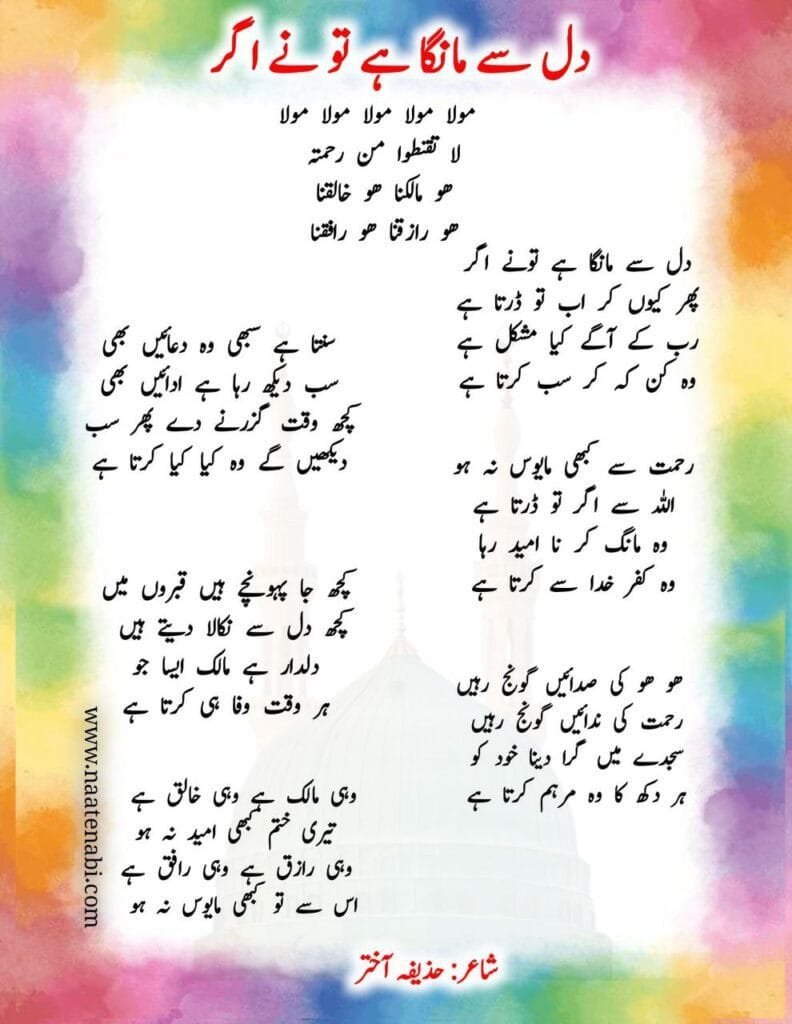 دل سے مانگا ہے تو نے اگر
مولا مولا مولا مولا مولا
لا تقنطوا من رحمتہ
ھو مالکنا ھو خالقنا
ھو رازقنا ھو رافقنا
دل سے مانگا ہے تونے اگر
پھر کیوں کر اب تو ڈرتا ہے
رب کے آگے کیا مشکل ہے
وہ کن کہ کر سب کرتا ہے
سنتا ہے سبھی وہ دعائیں بھی
سب دیکھ رہا ہے ادائیں بھی
کچھ وقت گزرنے دے پھر سب
دیکھیں گے وہ کیا کیا کرتا ہے
رحمت سے کبھی مایوس نہ ہو
اللہ سے اگر تو ڈرتا ہے
وہ مانگ کر نا امید رہا
وہ کفر خدا سے کرتا ہے
کچھ جا پہونچے ہیں قبروں میں
کچھ دل سے نکالا دیتے ہیں
دلدار ہے مالک ایسا جو
ہر وقت وفا ہی کرتا ہے
ھو ھو کی صدائیں گونج رہیں
رحمت کی ندائیں گونج رہیں
سجدے میں گرا دینا خود کو
ہر دکھ کا وہ مرہم کرتا ہے
وہی مالک ہے وہی خالق ہے
تیری ختم کبھی امید نہ ہو
وہی رازق ہے وہی رافق ہے
اس سے تو کبھی مایوس نہ ہو
شاعر: حذیفہ آختر
www.naatenabi.com